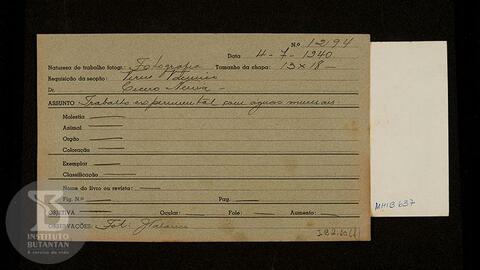 N.º 1294
Data 4-7-1940
Natureza de trabalho fotogr.: Fotografia Tamanho da chapa: 13 x 18 —
Requisição da secção: Virus
Dr. Cicero Neiva —
ASSUNTO: Trabalho experimental com aguas minerais
Molestia
Animal
Orgão
Coloração
Exemplar
Classificação
Nome do livro ou revista:
Fig. N.º Pag.
OBJETIVA Ocular: Fole: Aumento:
OBSERVAÇÕES: Fot.
MHIB 637
INSTITUTO
BUTANTAN
A serviço da vida